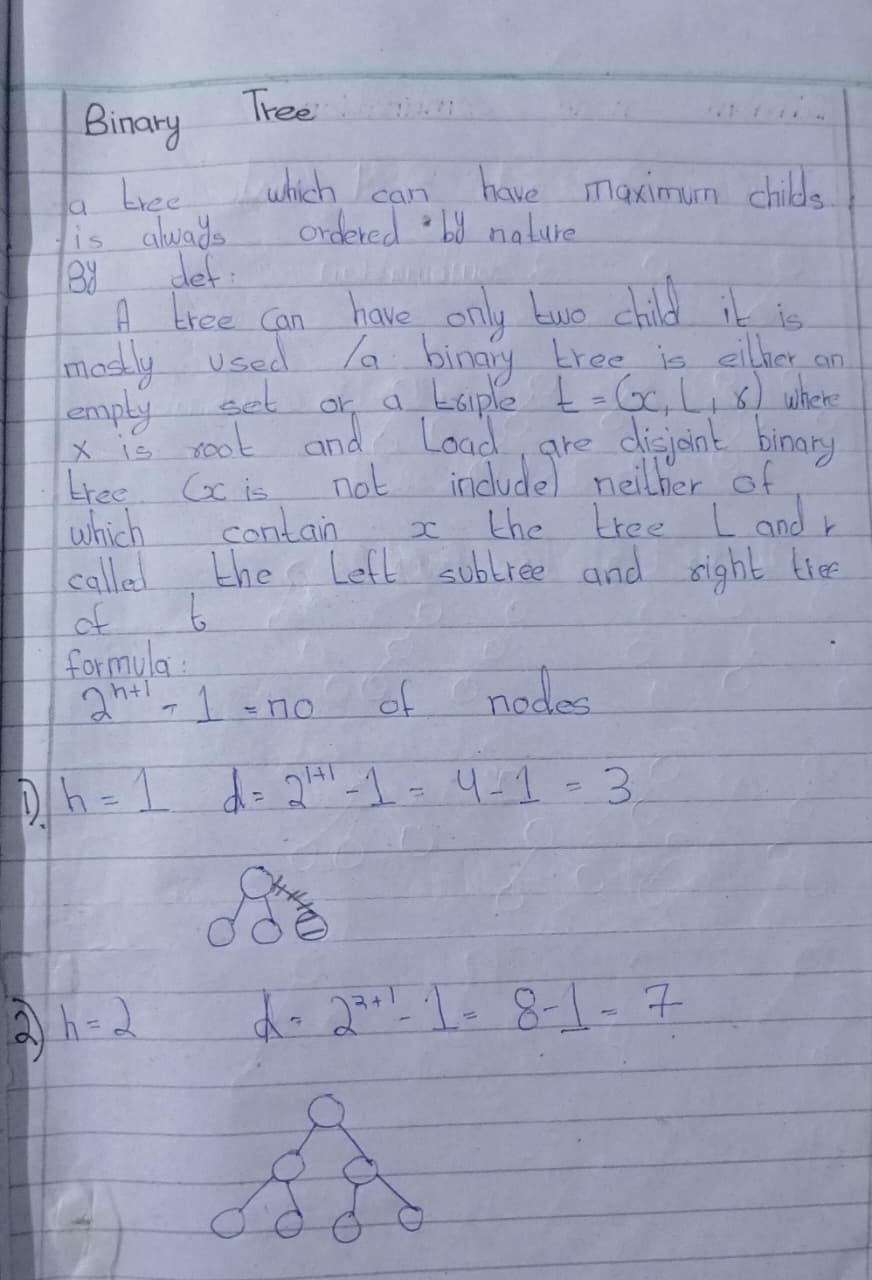 Binary Tree
a tree which can have maximum childs
is always ordered by nature
By def:
A tree can have only two child it is
mostly used /a binary tree is either an
empty set or a triple t = (x, L, r) where
x is root and Load are disjoint binary
tree (x is not include) neither of
which contain x the tree L and r
called the Left subtree and right tree
of t
formula:
2^(h+1) - 1 = no of nodes
1) h = 1 d = 2^(1+1) - 1 = 4 - 1 = 3
2) h = 2 d = 2^(2+1) - 1 = 8 - 1 = 7